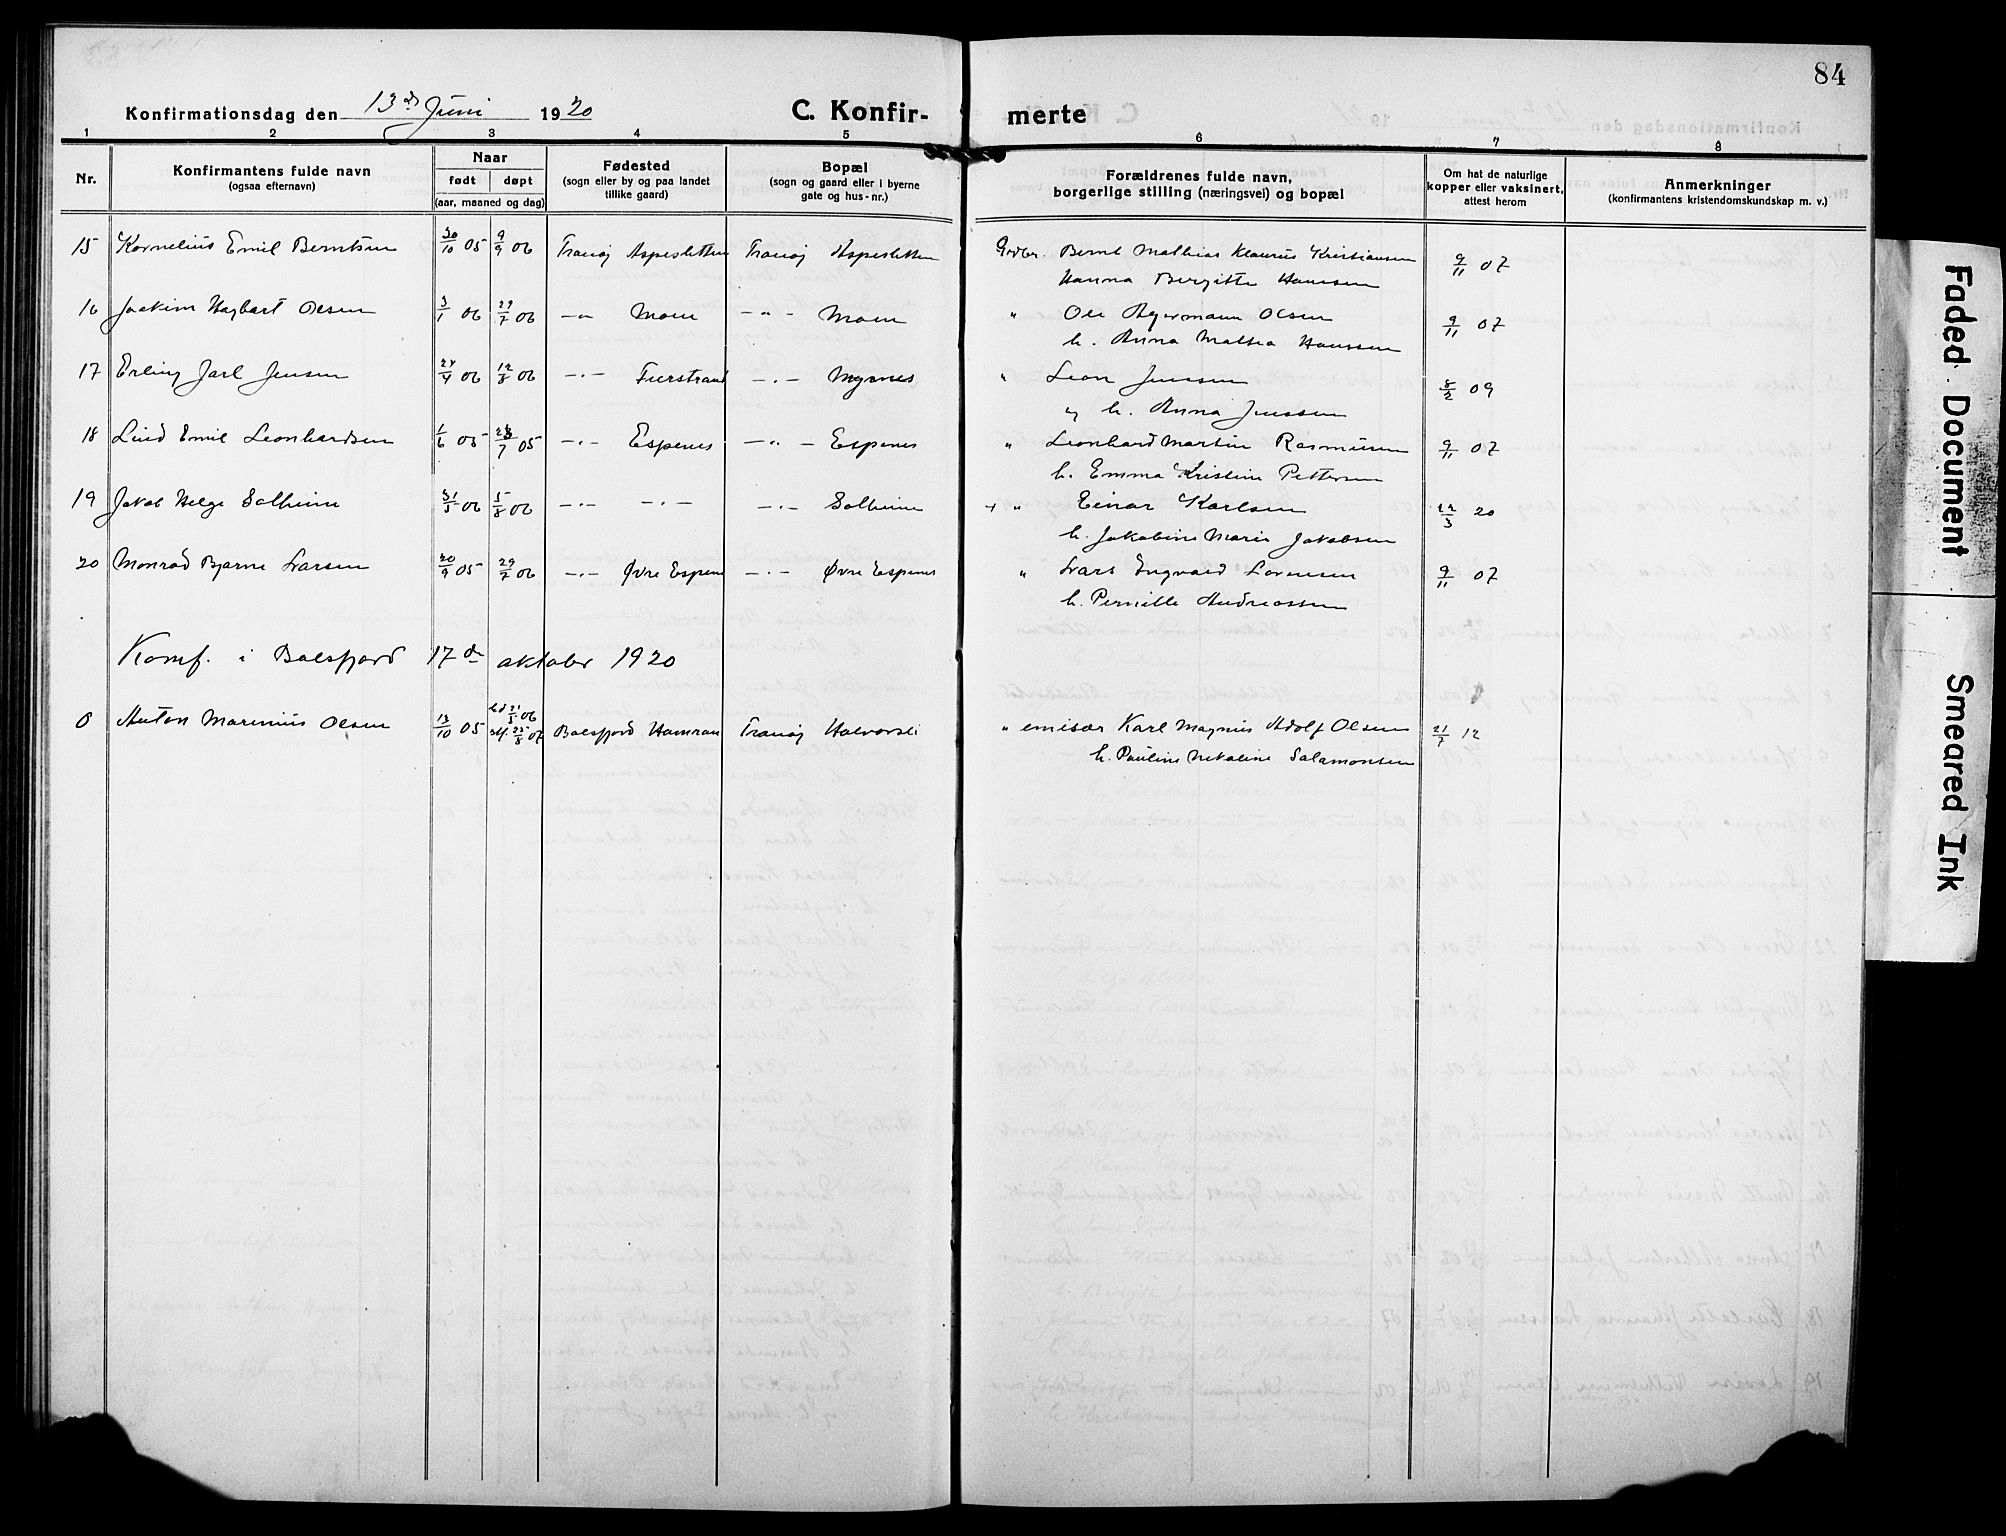 84
Konfirmationsdag den 13de Juni 1920 C. Konfirmerte
1 2 3 4 5 6 7 8
Nr. Konfirmantens fulde navn (ogsaa efternavn) Naar født døpt (aar, maaned og dag) Fødested (sogn eller by og paa landet tillike gaard) Bopæl (sogn og gaard eller i byerne gate og hus-nr.) Forældrenes fulde navn, borgerlige stilling (næringsvei) og bopæl Om hat de naturlige kopper eller vaksinert, attest herom Anmerkninger (konfirmantens kristendomskundskap m. v.)
15 Kornelius Emil Berntsen 30/10 05 9/9 06 Tranøj Aspesletten Tranøj Aspesletten Grdbr. Bernt Mathias Klaurus Kristiansen 9/11 07
Hanna Bergitte Hanssen
16 Joakim Hagbart Olsen 3/1 06 29/7 06 -"- Moen -"- Moen " Ole Agermann Olsen 9/11 07
h. Anna Maltea Hanssen
17 Erling Jarl Jensen 24/4 06 12/8 06 -"- -"- Myrnes " Leon Jenssen 8/2 09
og h. Anna Jenssen
18 Lind Emil Leonhardsen 1/6 05 /7 05 -"- Espenes -"- Espenes " Leonhard Martin Rasmusen 9/11 07
h. Emma Kristine Pettersen
19 Jakob Helge Solheim 31/5 06 5/8 06 -"- -"- -"- Solheim + " Einar Karlsen 22/3 20
h. Jakobine Marie Jakobsen
20 Monrad Bjarne Larsen 20/9 05 29/7 06 -"- Øvre Espenes -"- Øvre Espenes " Lars Engvard Lorensen 9/11 07
h. Pernille Andreassen
Konf. i Balsfjord 17de oktober 1920
0 Anton Marinius Olsen 13/10 05 hd 21/5 06 Balsfjord Tranøj Halvorsli " emisær Karl Magnus Adolf Olsen 21/7 12
stf. 25/8 07
h. Pauline Nekoline Salamonsen
Faded Document
Smeared Ink